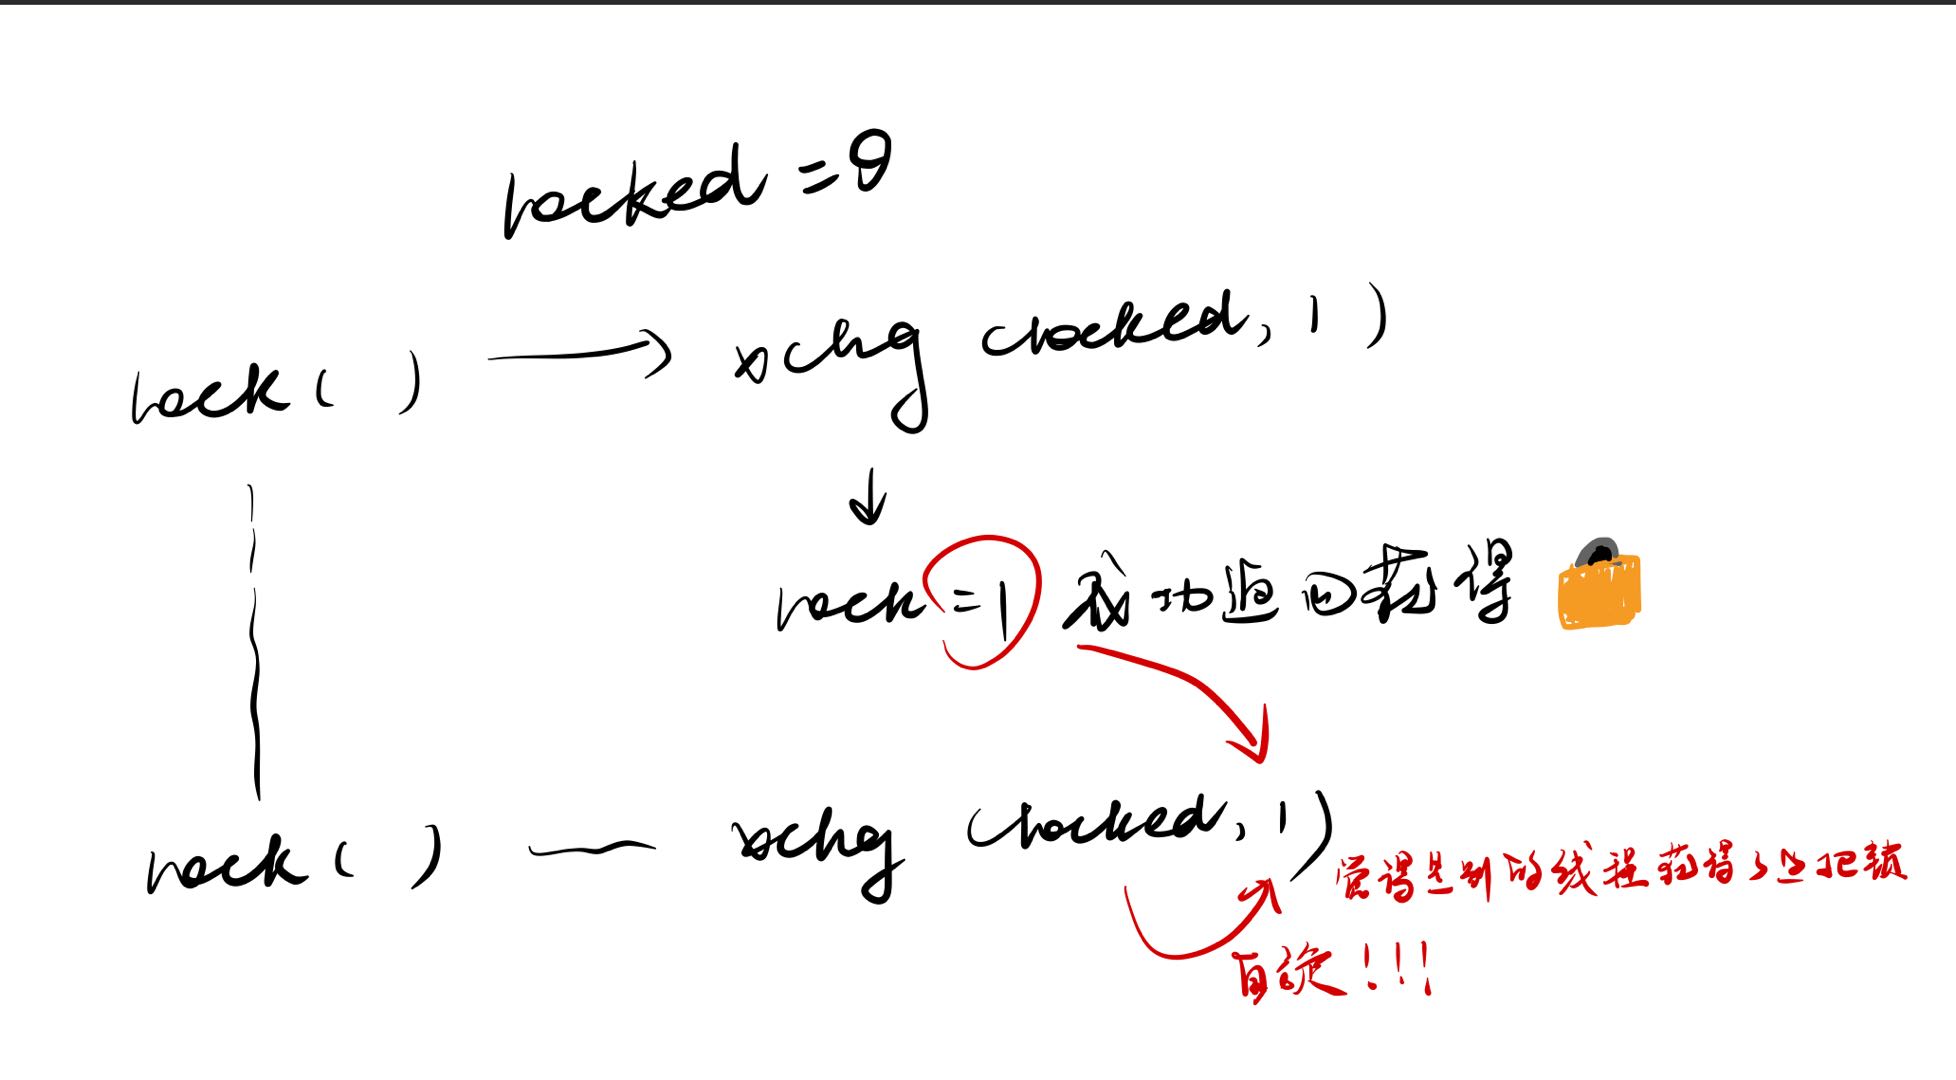 locked = 0
lock ( ) → xchg (locked, 1 )
↓
lock = 1 成功返回获得
lock ( ) — xchg (locked, 1)
觉得是别的线程获得了这把锁
自旋!!!